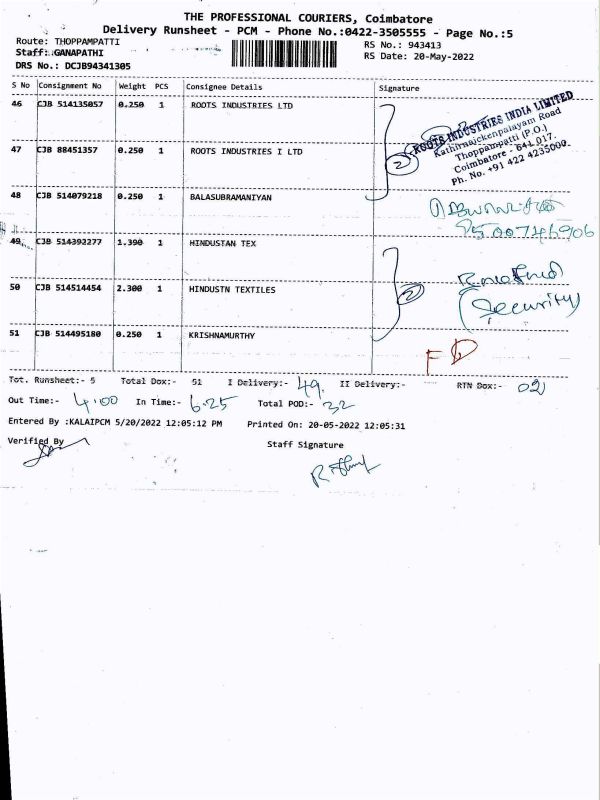 THE PROFESSIONAL COURIERS, Coimbatore
Delivery Runsheet - PCM - Phone No.:0422-3505555 - Page No.:5
Route: THOPPAMPATTI
RS No.: 943413
Staff: GANAPATHI
RS Date: 20-May-2022
DRS No.: DCJB94341305
S No Consignment No Weight PCS Consignee Details Signature
46 CJB 514135057 0.250 1 ROOTS INDUSTRIES LTD
ROOTS INDUSTRIES INDIA LIMITED
Kathirnaickenpalayam Road
Thoppampatti (P.O.)
Coimbatore - 641 017.
Ph. No. +91 422 4235000
2
47 CJB 88451357 0.250 1 ROOTS INDUSTRIES I LTD
48 CJB 514079218 0.250 1 BALASUBRAMANIYAN
49 CJB 514392277 1.390 1 HINDUSTAN TEX
50 CJB 514514454 2.300 1 HINDUSTN TEXTILES
2
(Security)
51 CJB 514495180 0.250 1 KRISHNAMURTHY
FD
Tot. Runsheet:- 5 Total Dox:- 51 I Delivery:- 49. II Delivery:- RTN Dox:- 02
Out Time:- 4.00 In Time:- 6.25 Total POD:- 32
Entered By :KALAIPCM 5/20/2022 12:05:12 PM Printed On: 20-05-2022 12:05:31
Verified By
Staff Signature